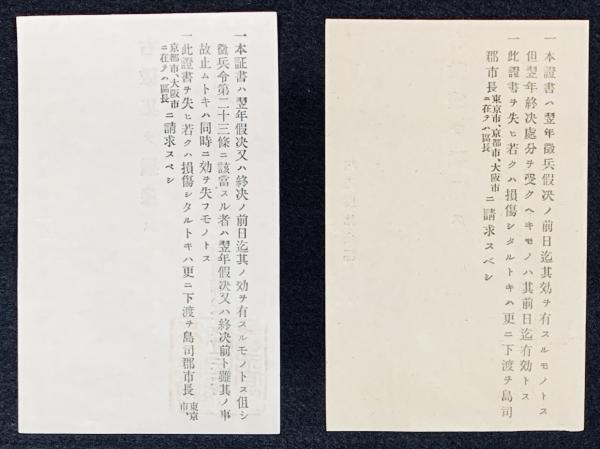 一本証書ハ翌年假決又ハ終決ノ前日迄其ノ効ヲ有スルモノトス但シ
徴兵令第二十三條ニ該當スル者ハ翌年假決又ハ終決前ト雖其ノ事
故止ムトキハ同時ニ効ヲ失フモノトス
一此證書ヲ失ヒ若クハ損傷シタルトキハ更ニ下渡ヲ島司郡市長 東京市、
京都市、大阪市ニ在テハ區長 ニ請求スベシ
一本證書ハ翌年徴兵假決ノ前日迄其効ヲ有スルモノトス
但翌年終決處分ヲ受クヘキモノハ其前日迄有効トス
一此證書ヲ失ヒ若クハ損傷シタルトキハ更ニ下渡ヲ島司
郡市長 東京市、京都市、大阪市ニ在テハ區長 ニ請求スベシ